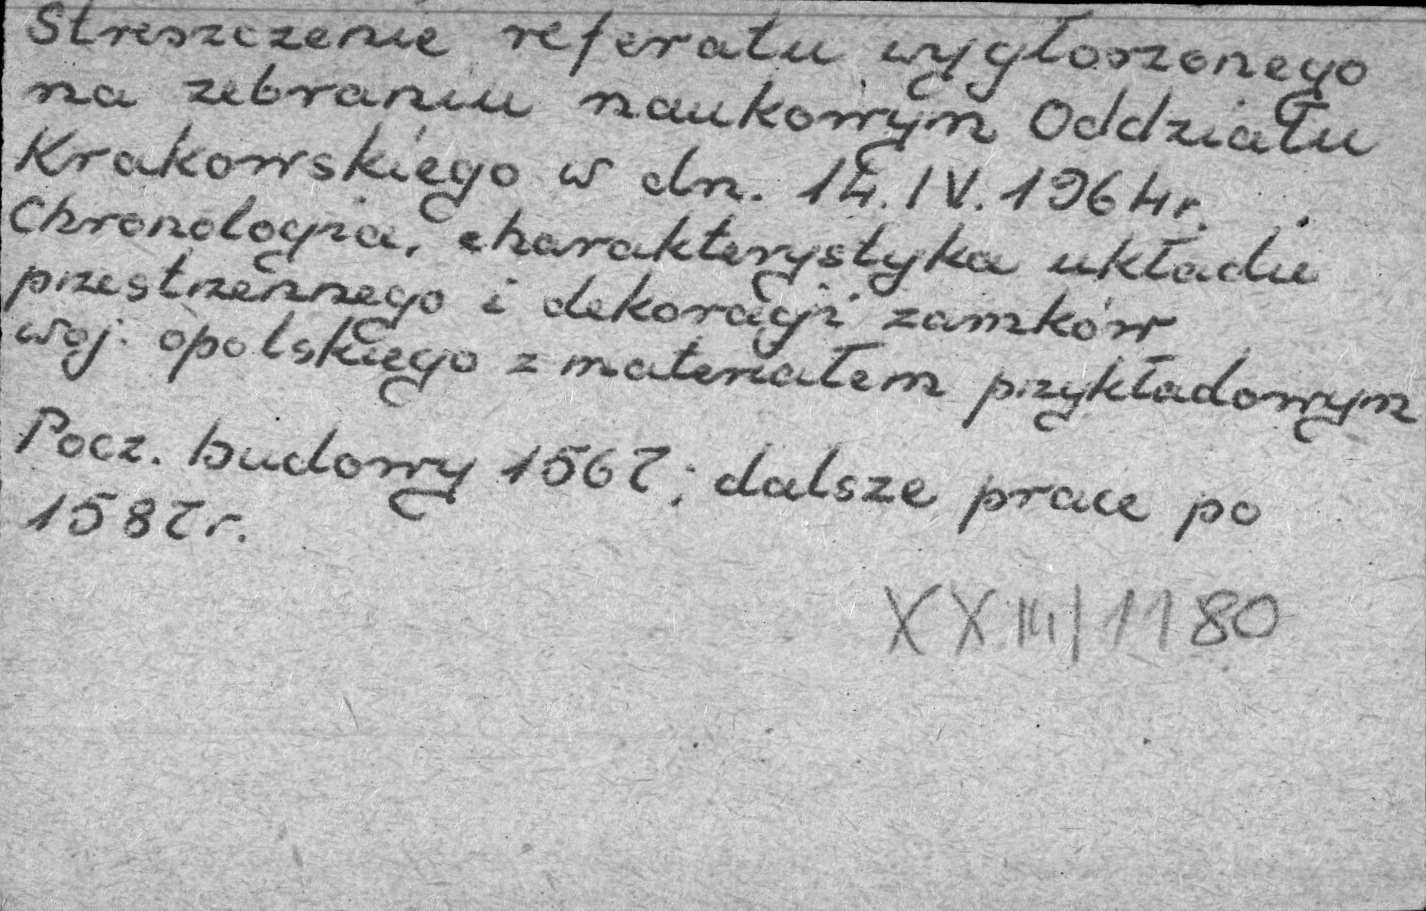 Streszczenie referatu wygłoszonego
na zebraniu naukowym Oddziału
Krakowskiego w dn. 14.IV.1964r.
Chronologia, charakterystyka układu
przestrzennego i dekoracji zamków
woj. opolskiego z materiałem przykładowym
Pocz. budowy 1567; dalsze prace po
1587r.
XXIII/1180